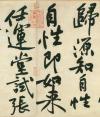 歸源知自性
自性即如来
任運堂試張